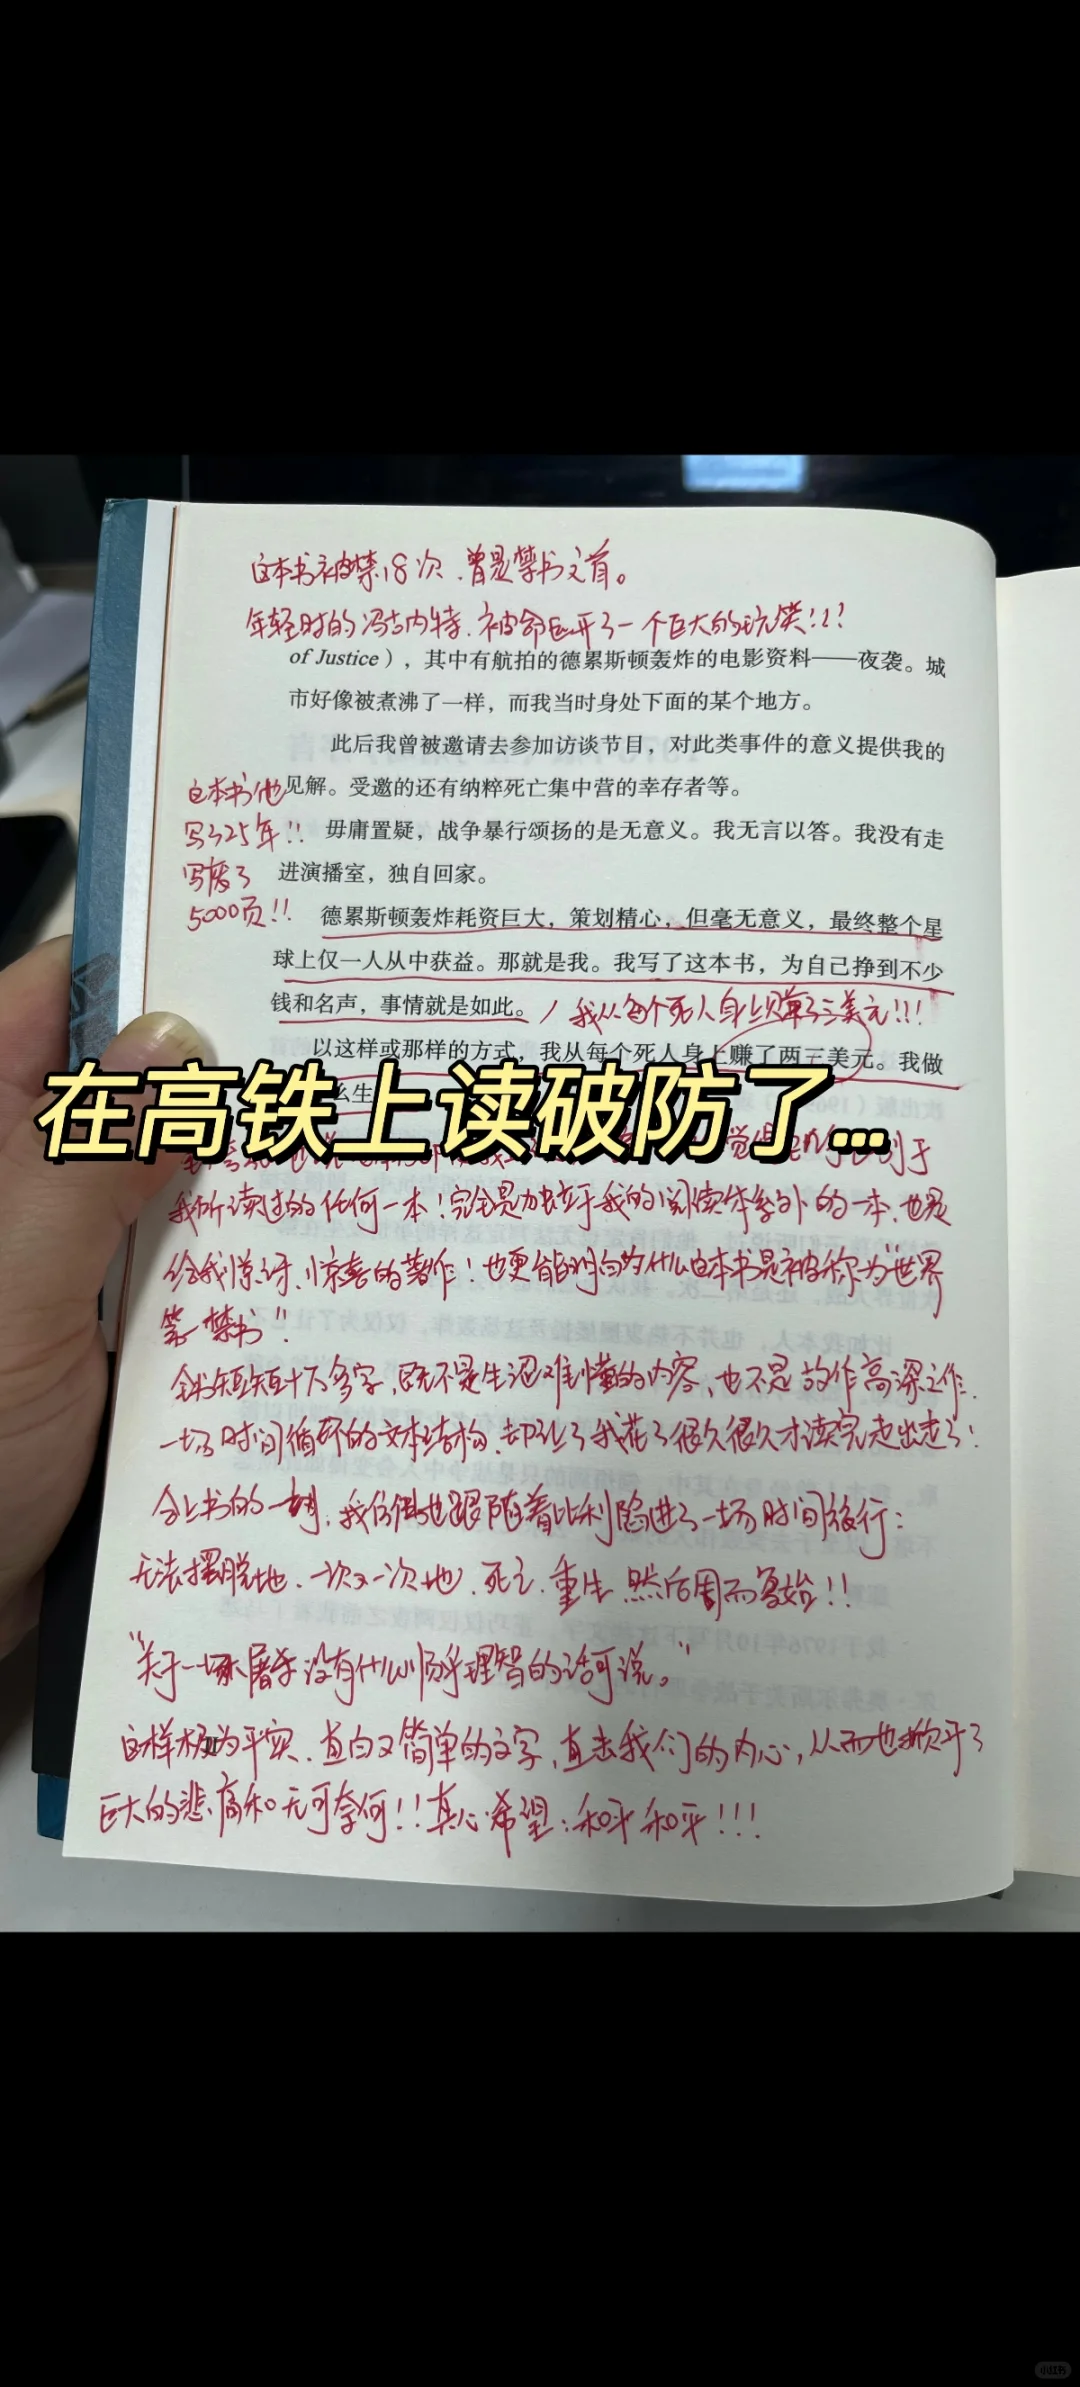 这本书被禁18次，曾是禁书之首。
年轻时的冯古内特，被命运开了一个巨大的玩笑!!?
of Justice），其中有航拍的德累斯顿轰炸的电影资料——夜袭。城
市好像被煮沸了一样，而我当时身处下面的某个地方。
此后我曾被邀请去参加访谈节目，对此类事件的意义提供我的
见解。受邀的还有纳粹死亡集中营的幸存者等。
毋庸置疑，战争暴行颂扬的是无意义。我无言以答。我没有走
进演播室，独自回家。
这本书他
写了25年!!
写废了
5000页!!
德累斯顿轰炸耗资巨大，策划精心，但毫无意义，最终整个星
球上仅一人从中获益。那就是我。我写了这本书，为自己挣到不少
钱和名声，事情就是如此。
/我从每个死人身上赚了三美元!!!
以这样或那样的方式，我从每个死人身上赚了两三美元。我做
么生
在高铁上读破防了...
别于
我所读过的任何一本!完全是独立于我的阅读体系外的一本，也是
给我惊讶、惊喜的著作!也更能明白为什么这本书是被称为"世界
第一禁书"
全书短短十万多字，既不是生涩难懂的内容，也不是故作高深之作，
一场时间循环的文本结构，却让了我花了很久很久才读完走出走了!
合上书的一刻，我仿佛也跟随着比利隐进了一场时间旅行:
无法摆脱地、一次又一次地，死亡、重生 然后周而复始!!
"关于一场屠杀没有什么顺乎理智的话可说。"
这样极为平实、直白又简单的文字，直击我们的内心，从而也掀开了
巨大的悲痛和无可奈何!!真心希望:和平和平!!!
小红书